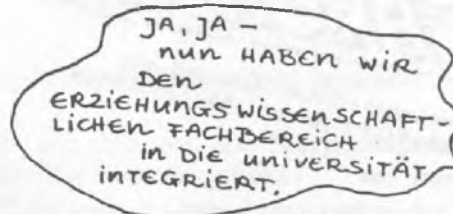 JA, JA –
nun HABEN WIR
DEN
ERZIEHUNGSWISSENSCHAFT-
LICHEN FACHBEREICH
in DIE UNIVERSITÄT
INTEGRIERT.